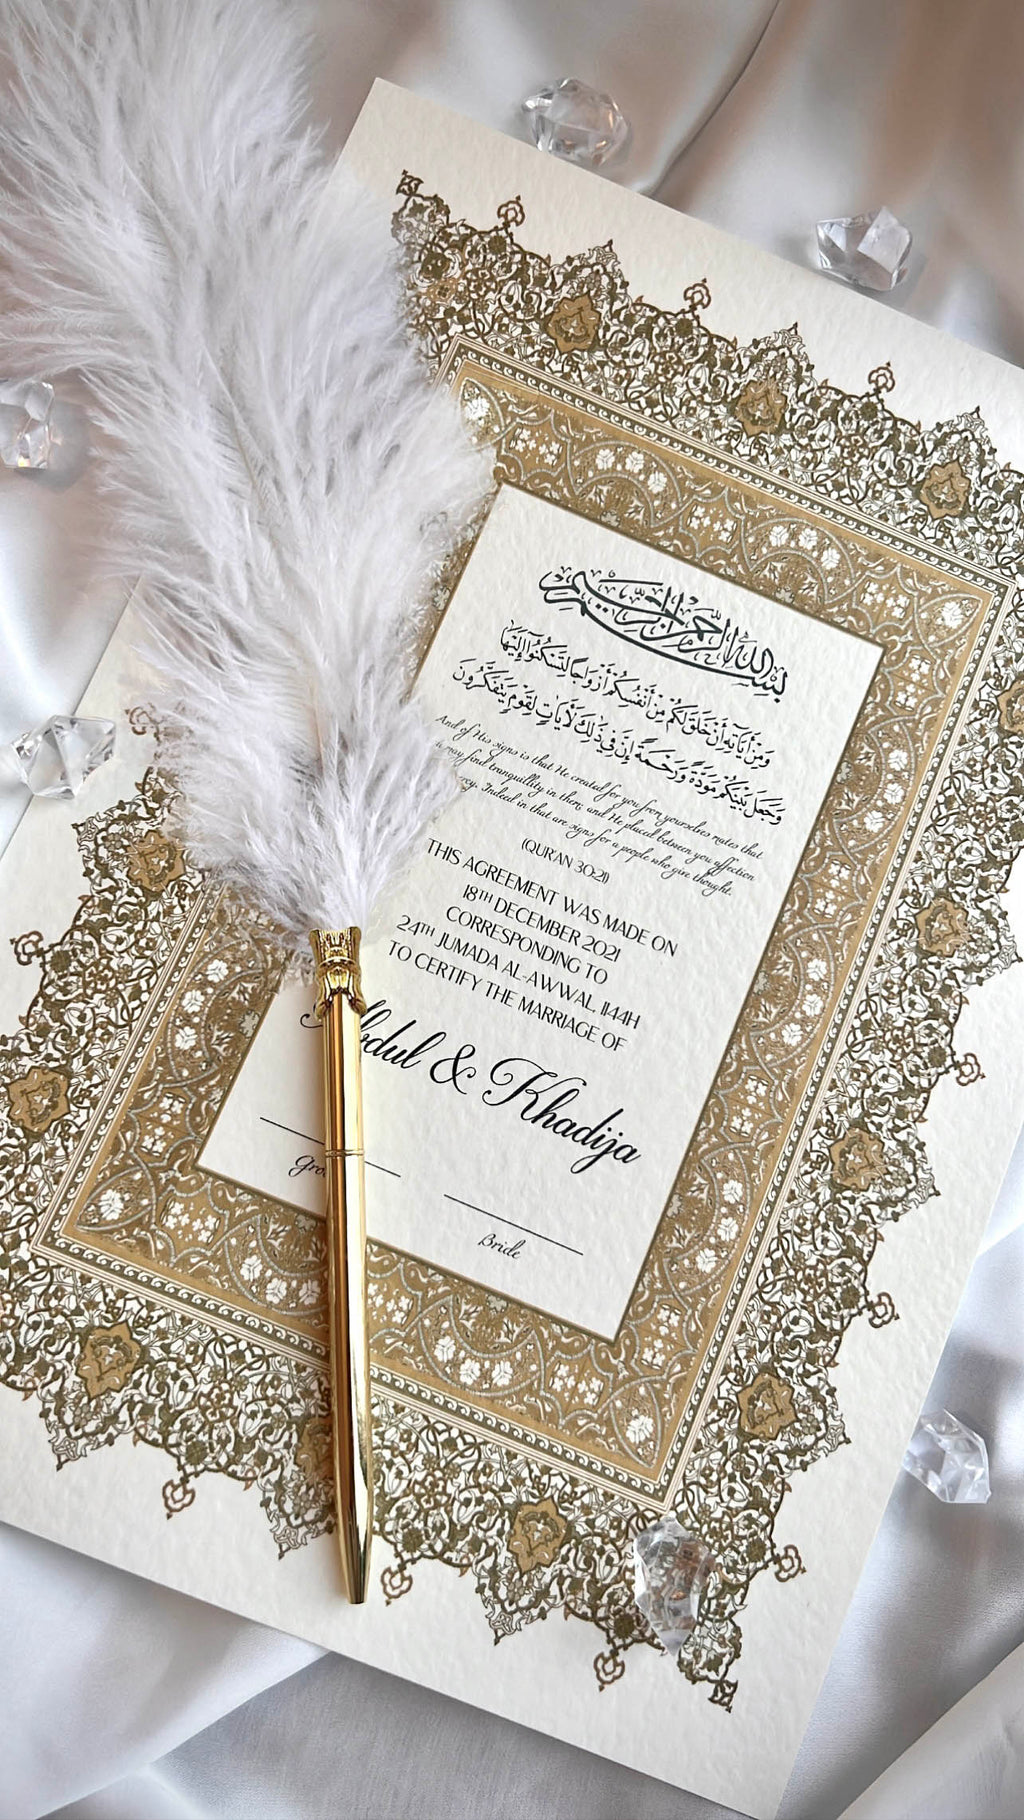 بسم الله الرحمن الرحيم
وَمِنْ آيَاتِهِ أَنْ خَلَقَ لَكُمْ مِنْ أَنْفُسِكُمْ أَزْوَاجًا لِتَسْكُنُوا إِلَيْهَا
وَجَعَلَ بَيْنَكُمْ مَوَدَّةً وَرَحْمَةً إِنَّ فِي ذَلِكَ لَآيَاتٍ لِقَوْمٍ يَتَفَكَّرُونَ
And of His signs is that He created for you from yourselves mates that
may find tranquillity in them; and He placed between you affection
Indeed in that are signs for a people who give thought.
(QUR'AN 30:21)
THIS AGREEMENT WAS MADE ON
18TH DECEMBER 2021
CORRESPONDING TO
24TH JUMADA AL-AWWAL, 1144H
TO CERTIFY THE MARRIAGE OF
& Khadija
Bride